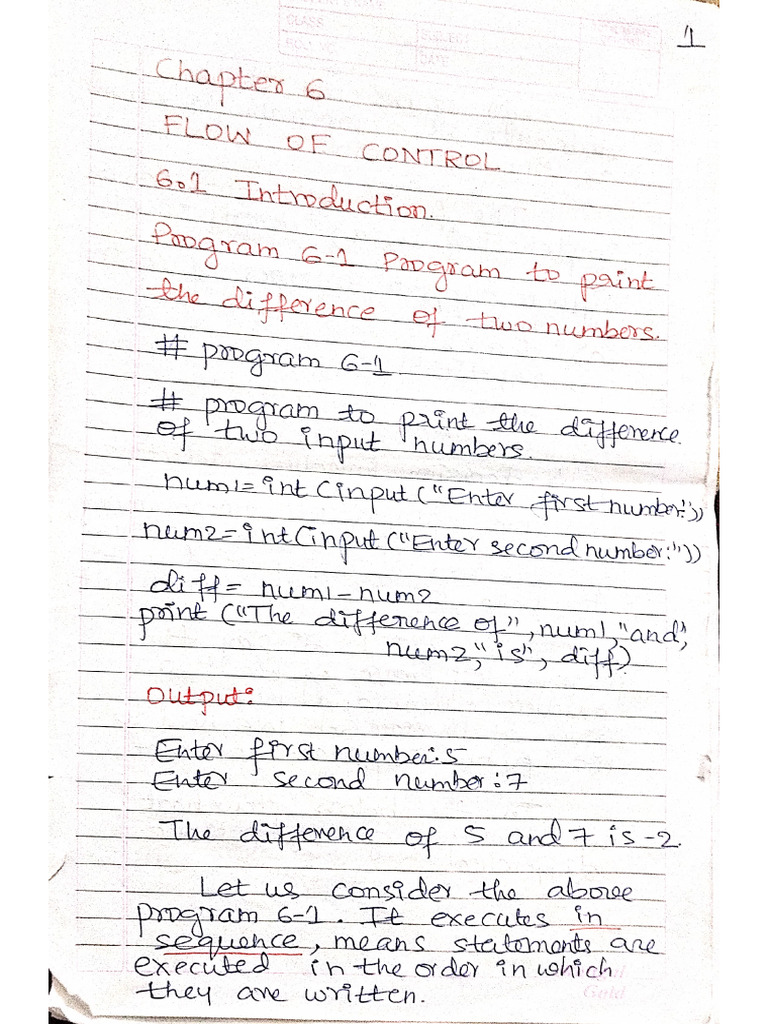 1
CLASS
ROLL NO.
SUBJECT
DATE
Chapter 6
FLOW OF CONTROL
6.1 Introduction.
Program 6-1 Program to print
the difference of two numbers.
# program 6-1
# program to print the difference
of two input numbers.
num1=int(input("Enter first number:"))
num2=int(input("Enter second number:"))
diff= num1-num2
print ("The difference of", num1,"and",
num2,"is", diff)
Output:
Enter first number:5
Enter second number:7
The difference of 5 and 7 is -2.
Let us consider the above
program 6-1. It executes in
sequence, means statements are
executed in the order in which
they are written.
Gold